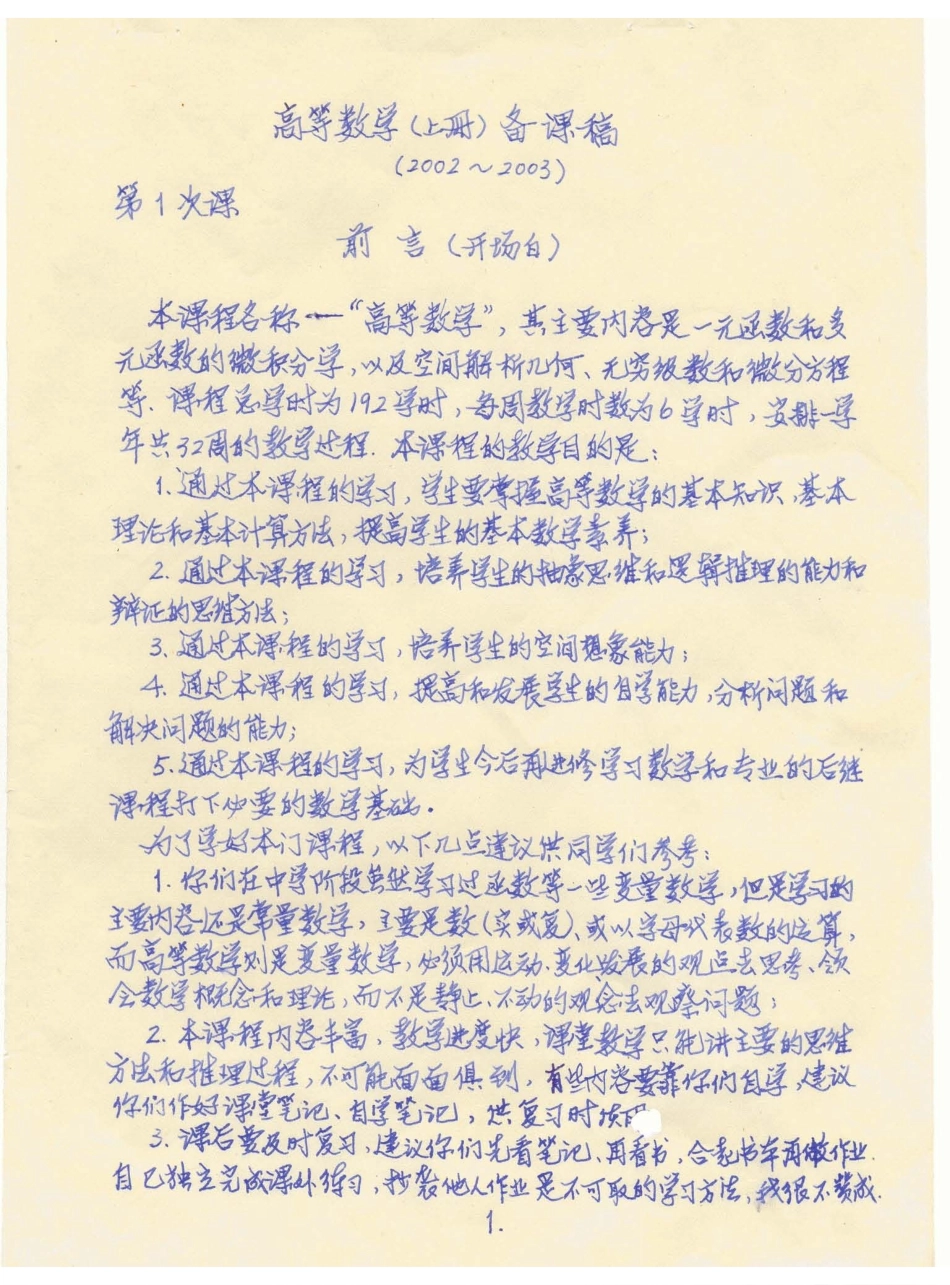 高等数学(上册)备课稿
(2002～2003)
第1次课
前言(开场白)
本课程名称—“高等数学”，其主要内容是一元函数和多
元函数的微积分学，以及空间解析几何、无穷级数和微分方程
等．课程总学时为192学时，每周教学时数为6学时，安排一学
年共32周的教学过程．本课程的教学目的是：
1.通过本课程的学习，学生要掌握高等数学的基本知识、基本
理论和基本计算方法，提高学生的基本数学素养；
2.通过本课程的学习，培养学生的抽象思维和逻辑推理的能力和
辩证的思维方法；
3.通过本课程的学习，培养学生的空间想象能力；
4.通过本课程的学习，提高和发展学生的自学能力，分析问题和
解决问题的能力；
5.通过本课程的学习，为学生今后再进修学习数学和专业的后继
课程打下必要的数学基础．
为了学好本门课程，以下几点建议供同学们参考：
1.你们在中学阶段虽然学习过函数等一些变量数学，但是学习的
主要内容还是常量数学，主要是数(实或复)、或以字母代表数的运算，
而高等数学则是变量数学，必须用运动、变化发展的观点去思考、领
会数学概念和理论，而不是静止、不动的观念去观察问题；
2.本课程内容丰富，教学进度快，课堂教学只能讲主要的思维
方法和推理过程，不可能面面俱到，有些内容要靠你们自学，建议
你们作好课堂笔记、自学笔记，供复习时
3.课后要及时复习，建议你们先看笔记、再看书，合起书本再做作业．
自己独立完成课外练习，抄袭他人作业是不可取的学习方法，我很不赞成．
1.